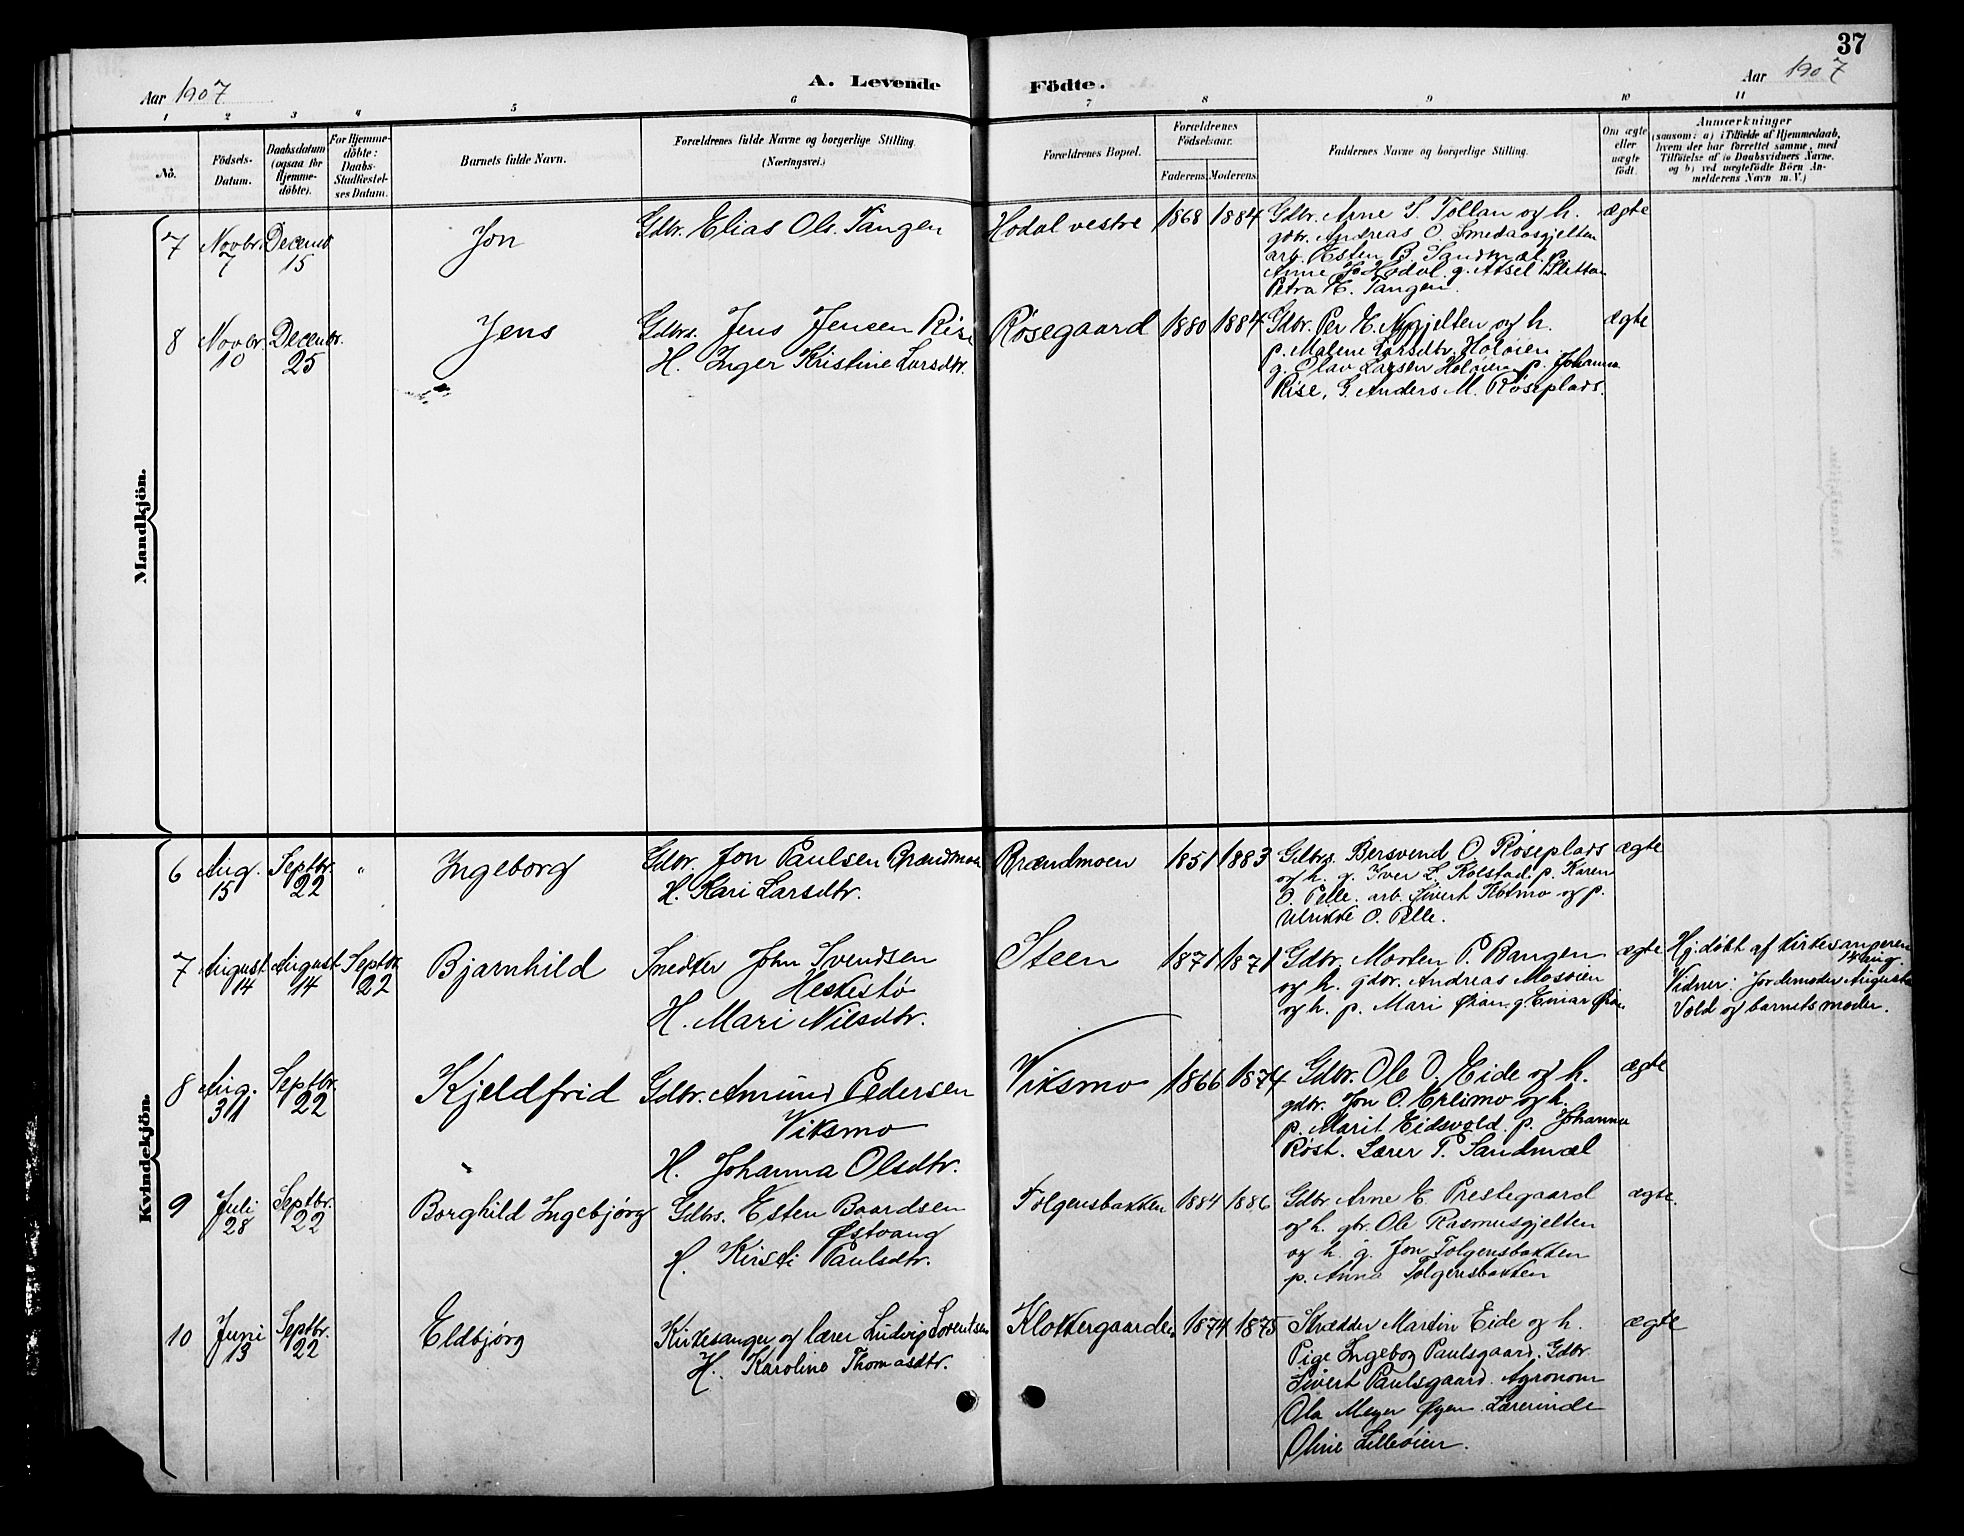 37
Aar 1907
A. Levende Födte.
Aar 1907
1 2 3 4 5 6 7 8 9 10 11
Nö.
Födsels-Datum.
Daabsdatum (ogsaa for Hjemme-döbte).
For Hjemme-döbte: Daabs-Stadfæstelses Datum.
Barnets fulde Navn.
Forældrenes fulde Navne og borgerlige Stilling. (Næringsvei.)
Forældrenes Bopæl.
Forældrenes Födselsaar.
Faderens. Moderens.
Faddernes Navne og borgerlige Stilling.
Om ægte eller uægte födt.
Anmærkninger
(saasom: a) i Tilfælde af Hjemmedaab, hvem der har forrettet samme, med Tilföielse af to Daabsvidners Navne, og b) ved uægtefödte Börn Anmelderens Navn m. V.)
Mandkjön.
7 Novbr. 7 Decemb. 15 Jon Gdbr. Elias Ols. Tangen Hodal vestre 1868 1884 Gdbr. Arne P. Tollan og h. ægte
gdbr. Andreas O. Smedaasgjelten
arb. Esten B. Sandmæl. p.
Anne J. Hodal. g. Aksel Sletten
Petra E. Tangen.
8 Novbr. 10 Decembr. 25 Jens Gdbrs. Jens Jensen Rise Røsegaard 1880 1884 Gdbr. Per E. Nygjelten og h. ægte
H. Inger Kristine Larsdtr. p. Malene Larsdtr. Holøien
g. Olav Larsen Holøien p. Johanna
Rise, G. Anders M. Røseplads.
Kvindekjön.
6 Aug. 15 Septbr. 22 " Ingeborg Gdbr. Jon Paulsen Brændmoen Brændmoen 1851 1883 Gdbrs. Bersvend O. Røseplads ægte
H. Kari Larsdtr. og h. g. Iver L. Kolstad. p. Karen
O. Pelle. arb. Sivert Kotmo og p.
Ulrikke O. Pelle.
7 August 14 August 14 Septbr. 22 Bjarnhild Snedker John Svendsen Steen 1871 1871 Gdbr. Morten P. Bangen ægte Hj. døbt af kirkesangeren
Heskestø og h. gdbr. Andreas Mosøien 14 aug.
H. Mari Nilsdtr. og h. p. Mari Øian, g. Einar Øian. Vidner: Jordemoder Augusta
Vold og barnets moder.
8 Aug. 31 Septbr. 22 Kjeldfrid Gdbr. Amund Pedersen Viksmo 1866 1874 Gdbr. Ole O. Eide og h. ægte
Viksmo gdbr. Jon O. Erlimo og h.
H. Johanna Olsdtr. p. Marit Eidsvold. p. Johanna
Røst. Lærer P. Sandmæl
9 Juli 28 Septbr. 22 Borghild Ingebjørg Gdbrs. Esten Baardsen Tolgensbakken 1884 1886 Gdbr Arne E. Prestegaard ægte.
Østvang og h. gbr. Ole Rasmusgjelten
H. Kirsti Paulsdtr. og h. g. Jon Tolgensbakken
p. Anna Tolgensbakken
10 Juni 13 Septbr. 22 Eldbjørg Kirkesanger og lærer Ludvig Lorentsen Klokkergaarden 1874 1875 Skrædder Martin Eide og h. ægte
H. Karoline Thomasdtr. Pige Ingeborg Paulsgaard. Gdbr
Sivert Paulsgaard. Agronom
Ola Meyer Øgen. Lærerinde
Oline Lilleøien.